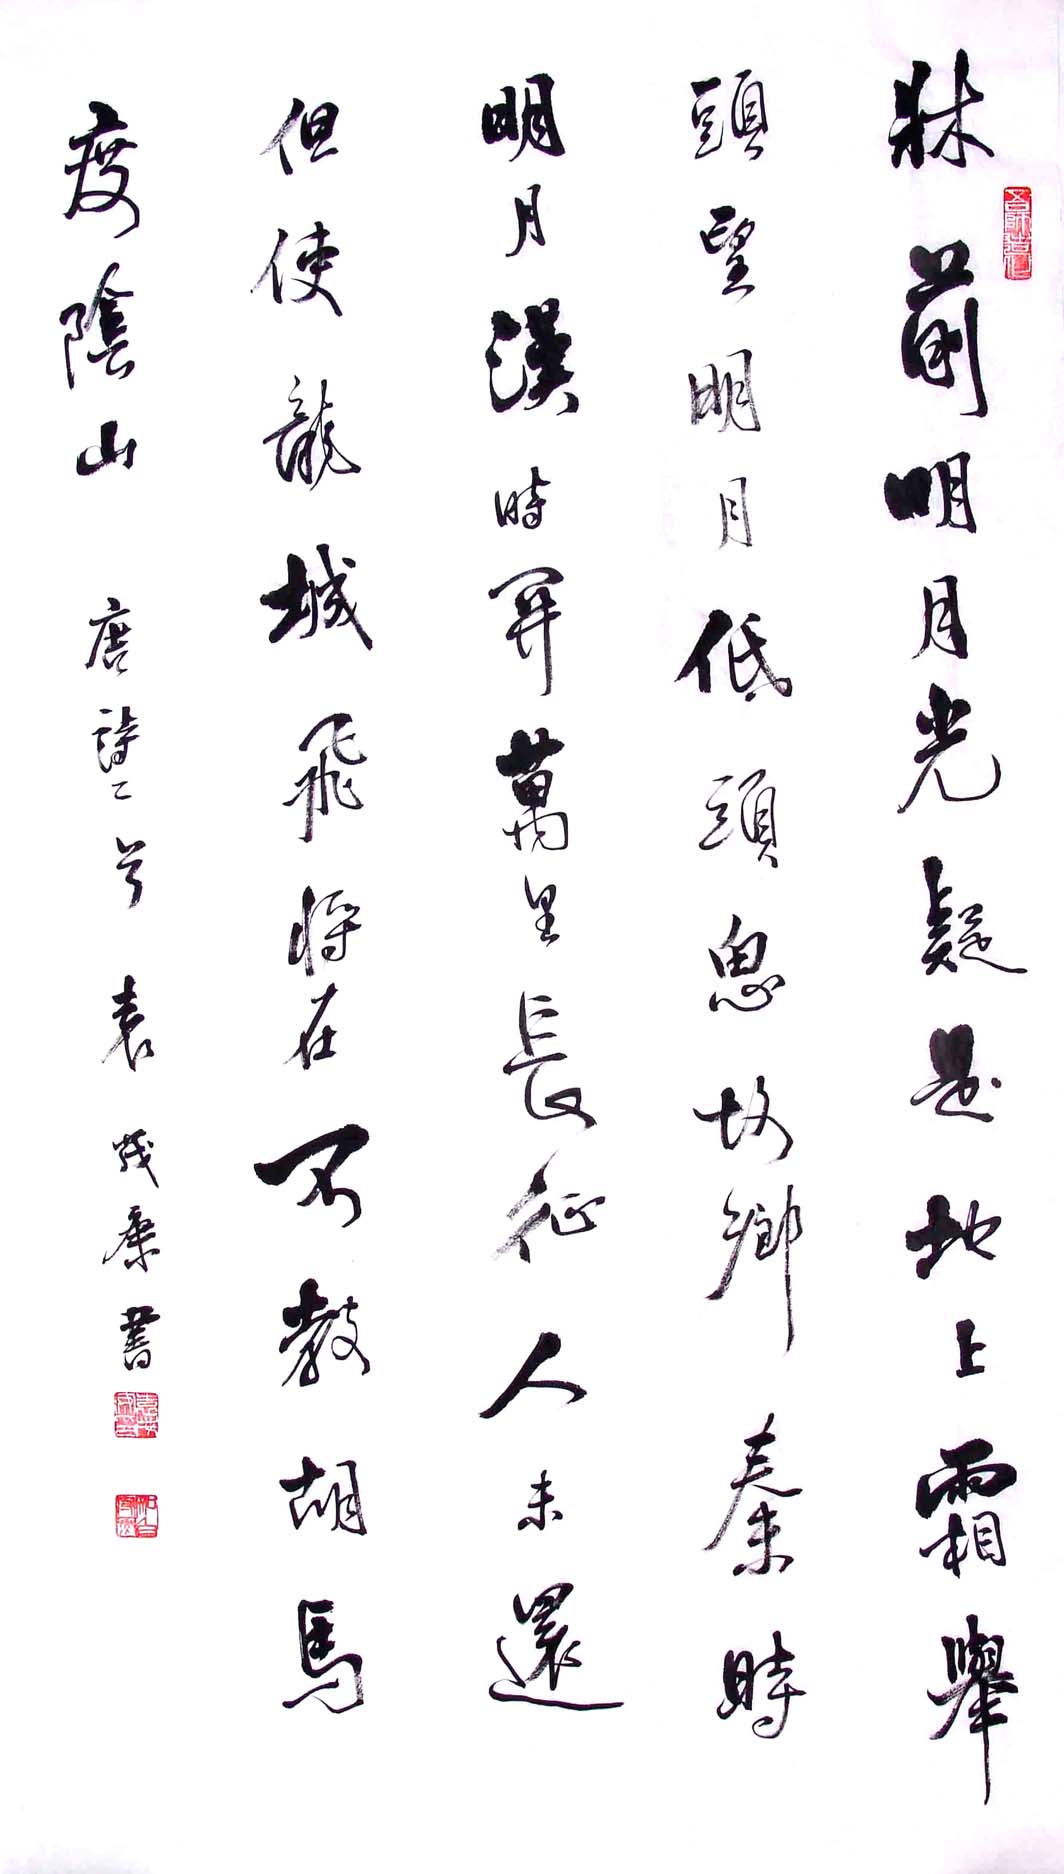 吾師造化
牀前明月光疑是地上霜舉
頭望明月低頭思故鄉 秦時
明月漢時開萬里長征人未還
但使龍城飛將在不教胡馬
度陰山 唐詩二首 袁茂書